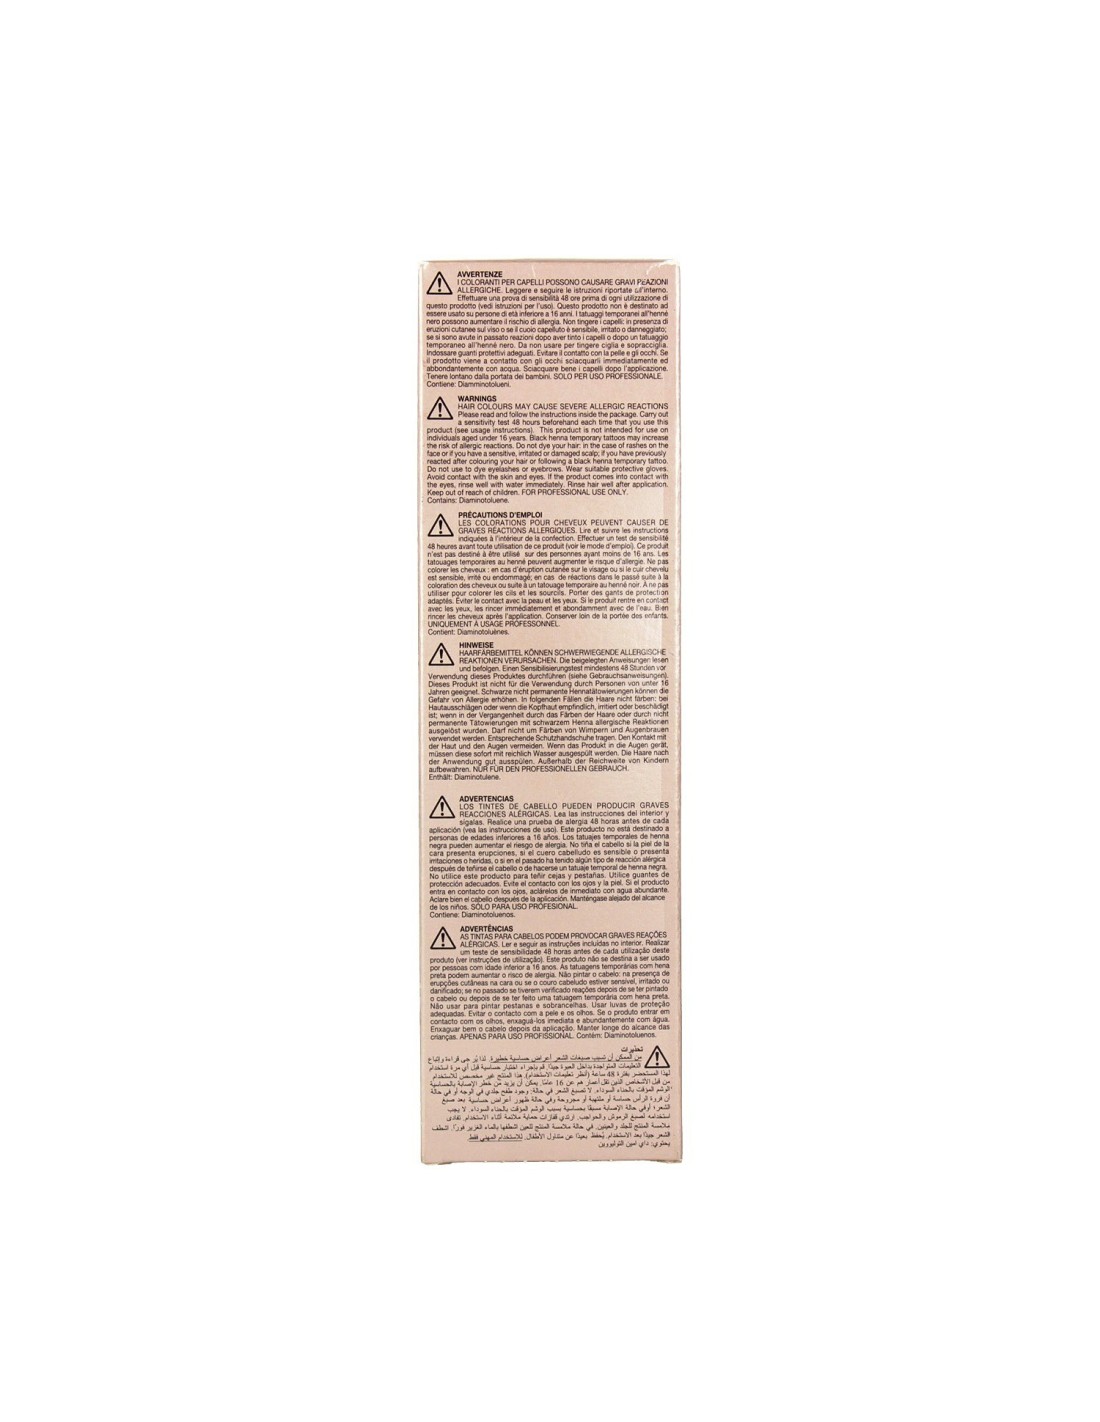 AVVERTENZE
I COLORANTI PER CAPELLI POSSONO CAUSARE GRAVI REAZIONI
ALLERGICHE. Leggere e seguire le istruzioni riportate all'interno.
Effettuare una prova di sensibilità 48 ore prima di ogni utilizzazione di
questo prodotto (vedi istruzioni per l'uso). Questo prodotto non è destinato ad
essere usato su persone di età inferiore a 16 anni. I tatuaggi temporanei all'henné
nero possono aumentare il rischio di allergia. Non tingere i capelli: in presenza di
eruzioni cutanee sul viso o se il cuoio capelluto è sensibile, irritato o danneggiato;
se si sono avute in passato reazioni dopo aver tinto i capelli o dopo un tatuaggio
temporaneo all'henné nero. Da non usare per tingere ciglia e sopracciglia.
Indossare guanti protettivi adeguati. Evitare il contatto con la pelle e gli occhi. Se
il prodotto viene a contatto con gli occhi sciacquarli immediatamente ed
abbondantemente con acqua. Sciacquare bene i capelli dopo l'applicazione.
Tenere lontano dalla portata dei bambini. SOLO PER USO PROFESSIONALE.
Contiene: Diamminotolueni.
WARNINGS
HAIR COLOURS MAY CAUSE SEVERE ALLERGIC REACTIONS
Please read and follow the instructions inside the package. Carry out
a sensitivity test 48 hours beforehand each time that you use this
product (see usage instructions). This product is not intended for use on
individuals aged under 16 years. Black henna temporary tattoos may increase
the risk of allergic reactions. Do not dye your hair: in the case of rashes on the
face or if you have a sensitive, irritated or damaged scalp; if you have previously
reacted after colouring your hair or following a black henna temporary tattoo.
Do not use to dye eyelashes or eyebrows. Wear suitable protective gloves.
Avoid contact with the skin and eyes. If the product comes into contact with
the eyes, rinse well with water immediately. Rinse hair well after application.
Keep out of reach of children. FOR PROFESSIONAL USE ONLY.
Contains: Diaminotoluene.
PRÉCAUTIONS D'EMPLOI
LES COLORATIONS POUR CHEVEUX PEUVENT CAUSER DE
GRAVES RÉACTIONS ALLERGIQUES. Lire et suivre les instructions
indiquées à l'intérieur de la confection. Effectuer un test de sensibilité
48 heures avant toute utilisation de ce produit (voir le mode d'emploi). Ce produit
n'est pas destiné à être utilisé sur des personnes ayant moins de 16 ans. Les
tatouages temporaires au henné peuvent augmenter le risque d'allergie. Ne pas
colorer les cheveux : en cas d'éruption cutanée sur le visage ou si le cuir chevelu
est sensible, irrité ou endommagé; en cas de réactions dans le passé suite à la
coloration des cheveux ou suite à un tatouage temporaire au henné noir. À ne pas
utiliser pour colorer les cils et les sourcils. Porter des gants de protection
adaptés. Éviter le contact avec la peau et les yeux. Si le produit rentre en contact
avec les yeux, les rincer immédiatement et abondamment avec de l'eau. Bien
rincer les cheveux après l'application. Conserver loin de la portée des enfants.
UNIQUEMENT À USAGE PROFESSONNEL.
Contient: Diaminotoluènes.
HINWEISE
HAARFÄRBEMITTEL KÖNNEN SCHWERWIEGENDE ALLERGISCHE
REAKTIONEN VERURSACHEN. Die beigelegten Anweisungen lesen
und befolgen. Einen Sensibilisierungstest mindestens 48 Stunden vor
Verwendung dieses Produktes durchführen (siehe Gebrauchsanweisungen).
Dieses Produkt ist nicht für die Verwendung durch Personen von unter 16
Jahren geeignet. Schwarze nicht permanente Hennatätowierungen können die
Gefahr von Allergie erhöhen. In folgenden Fällen die Haare nicht färben: bei
Hautausschlägen oder wenn die Kopfhaut empfindlich, irritiert oder beschädigt
ist; wenn in der Vergangenheit durch das Färben der Haare oder durch nicht
permanente Tätowierungen mit schwarzem Henna allergische Reaktionen
ausgelöst wurden. Darf nicht um Färben von Wimpern und Augenbrauen
verwendet werden. Entsprechende Schutzhandschuhe tragen. Den Kontakt mit
der Haut und den Augen vermeiden. Wenn das Produkt in die Augen gerät,
müssen diese sofort mit reichlich Wasser ausgespült werden. Die Haare nach
der Anwendung gut ausspülen. Außerhalb der Reichweite von Kindern
aufbewahren. NUR FÜR DEN PROFESSIONELLEN GEBRAUCH.
Enthält: Diaminotulene.
ADVERTENCIAS
LOS TINTES DE CABELLO PUEDEN PRODUCIR GRAVES
REACCIONES ALÉRGICAS. Lea las instrucciones del interior y
sígalas. Realice una prueba de alergia 48 horas antes de cada
aplicación (vea las instrucciones de uso). Este producto no está destinado a
personas de edades inferiores a 16 años. Los tatuajes temporales de henna
negra pueden aumentar el riesgo de alergia. No tiña el cabello si la piel de la
cara presenta erupciones, si el cuero cabelludo es sensible o presenta
irritaciones o heridas, o si en el pasado ha tenido algún tipo de reacción alérgica
después de teñirse el cabello o de hacerse un tatuaje temporal de henna negra.
No utilice este producto para teñir cejas y pestañas. Utilice guantes de
protección adecuados. Evite el contacto con los ojos y la piel. Si el producto
entra en contacto con los ojos, aclárelos de inmediato con agua abundante.
Aclare bien el cabello después de la aplicación. Manténgase alejado del alcance
de los niños. SÓLO PARA USO PROFESIONAL.
Contiene: Diaminotoluenos.
ADVERTÊNCIAS
AS TINTAS PARA CABELOS PODEM PROVOCAR GRAVES REAÇÕES
ALÉRGICAS. Ler e seguir as instruções incluídas no interior. Realizar
um teste de sensibilidade 48 horas antes de cada utilização deste
produto (ver instruções de utilização). Este produto não se destina a ser usado
por pessoas com idade inferior a 16 anos. As tatuagens temporárias com hena
preta podem aumentar o risco de alergia. Não pintar o cabelo: na presença de
erupções cutâneas na cara ou se o couro cabeludo estiver sensível, irritado ou
danificado; se no passado se tiverem verificado reações depois de se ter pintado
o cabelo ou depois de se ter feito uma tatuagem temporária com hena preta.
Não usar para pintar pestanas e sobrancelhas. Usar luvas de proteção
adequadas. Evitar o contacto com a pele e os olhos. Se o produto entrar em
contacto com os olhos, enxaguá-los imediata e abundantemente com água.
Enxaguar bem o cabelo depois da aplicação. Manter longe do alcance das
crianças. APENAS PARA USO PROFISSIONAL. Contém: Diaminotoluenos.
تحذيرات
من الممكن أن تسبب صبغات الشعر أعراض حساسية خطيرة. لذا يُرجى قراءة وإتباع
التعليمات المتواجدة بداخل العبوة جيدًا. قم بإجراء اختبار حساسية قبل أي مرة استخدام
لهذا المستحضر بفترة 48 ساعة (أنظر تعليمات الاستخدام). هذا المنتج غير مخصص للاستخدام
من قبل الأشخاص الذين تقل أعمارهم عن 16 عامًا. يمكن أن يزيد من خطر الإصابة بالحساسية
الوشم المؤقت بالحناء السوداء. لا تصبغ الشعر في حالة: وجود طفح جلدي في الوجه أو في حالة
أن فروة الرأس حساسة أو ملتهبة أو مجروحة وفي حالة ظهور أعراض حساسية بعد صبغ
الشعر؛ أوفي حالة الإصابة مسبقًا بحساسية بسبب الوشم المؤقت بالحناء السوداء. لا يجب
استخدامه لصبغ الرموش والحواجب. ارتدي قفازات حماية ملائمة أثناء الاستخدام. تفادى
ملامسة المنتج للجلد والعينين. في حالة ملامسة المنتج للعين اشطفها بالماء الغزير فورًا. اشطف
الشعر جيدًا بعد الاستخدام. يُحفظ بعيدًا عن متناول الأطفال. للاستخدام المهني فقط
يحتوي: داي امين التوليووين